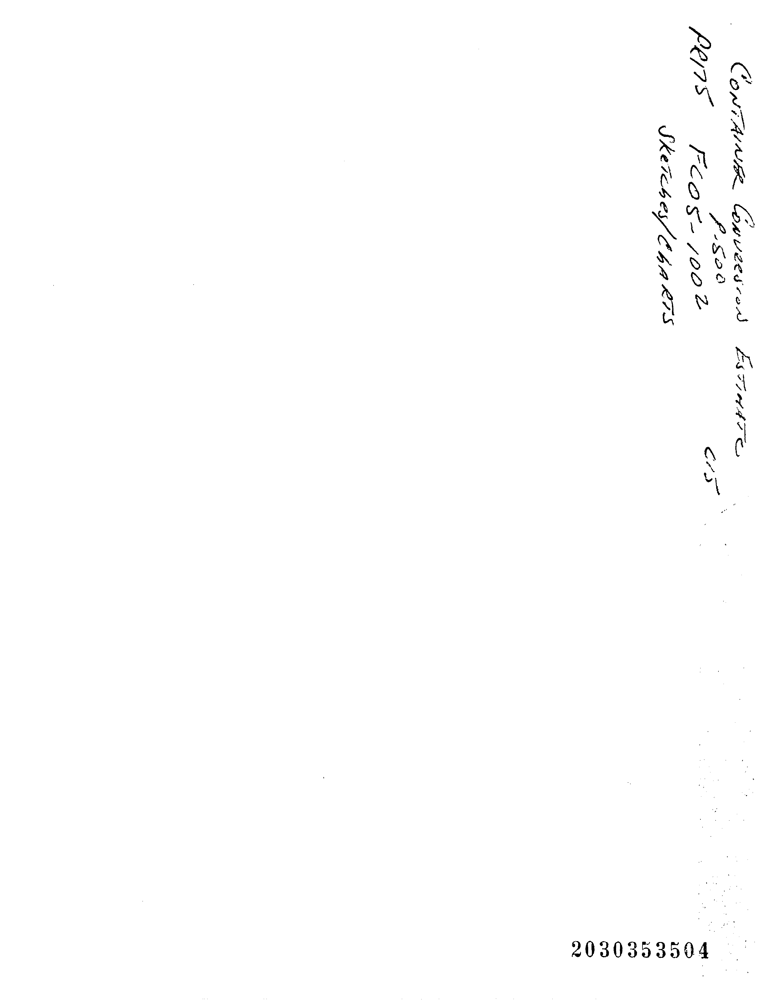 CONTAINER CONVERSION ESTIMATE
P-500
C15
PRITS FC05-1002
Sketches/CHARTS
2030353504